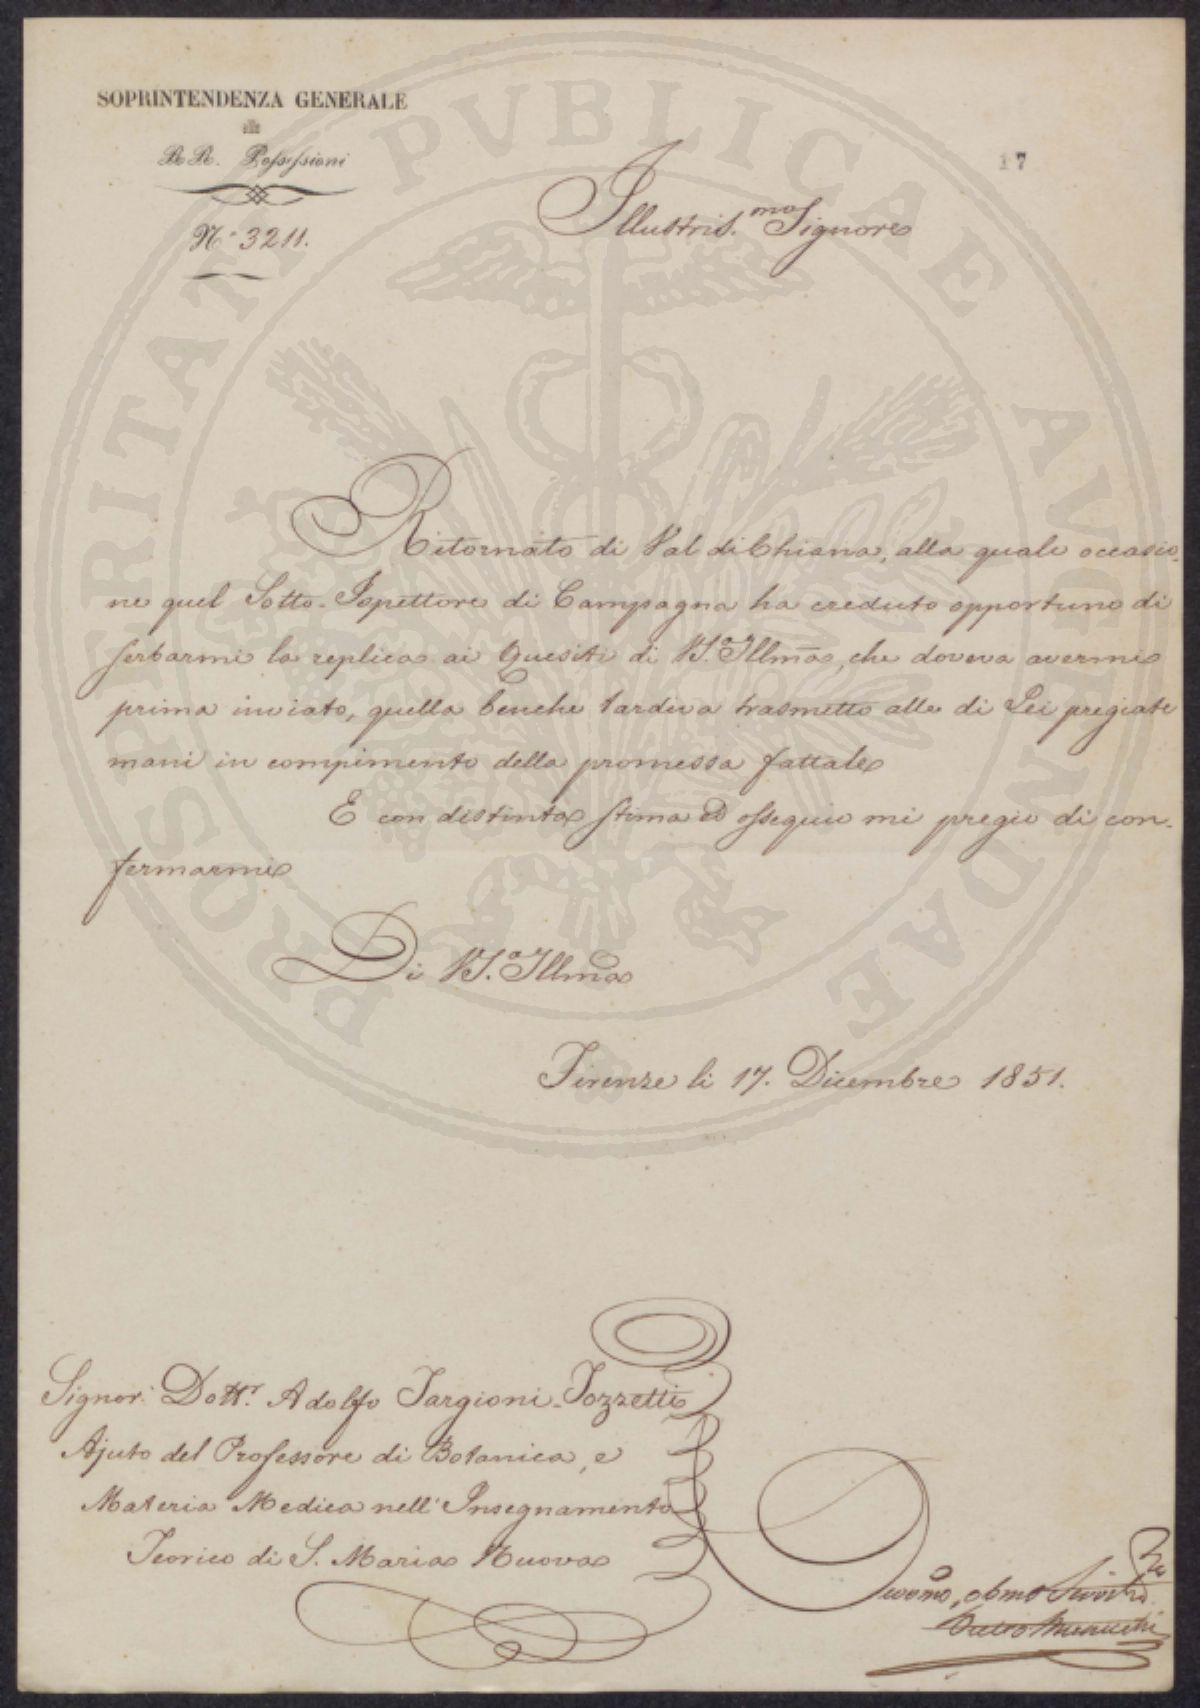 SOPRINTENDENZA GENERALE
alle
RR. Possessioni
N.° 3211.
17
Illustris.mo Signore
Ritornato di Val di Chiana, alla quale occasio-
ne quel Sotto-Ispettore di Campagna ha creduto opportuno di
serbarmi la replica ai Quesiti di VS.a Illma, che doveva avermi
prima inviato, quella benche tardiva trasmetto alle di Lei pregiate
mani in compimento della promessa fattale
E con distinta stima ed ossequio mi pregio di con-
fermarmi
Di VS.a Illma
Firenze li 17. Dicembre 1851.
Signor Dott.r Adolfo Targioni-Tozzetti
Ajuto del Professore di Botanica, e
Materia Medica nell'Insegnamento
Teorico di S. Maria Nuova
Devomo, obmo Servitre
PROSPERITATI PVBLICAE AVGENDAE